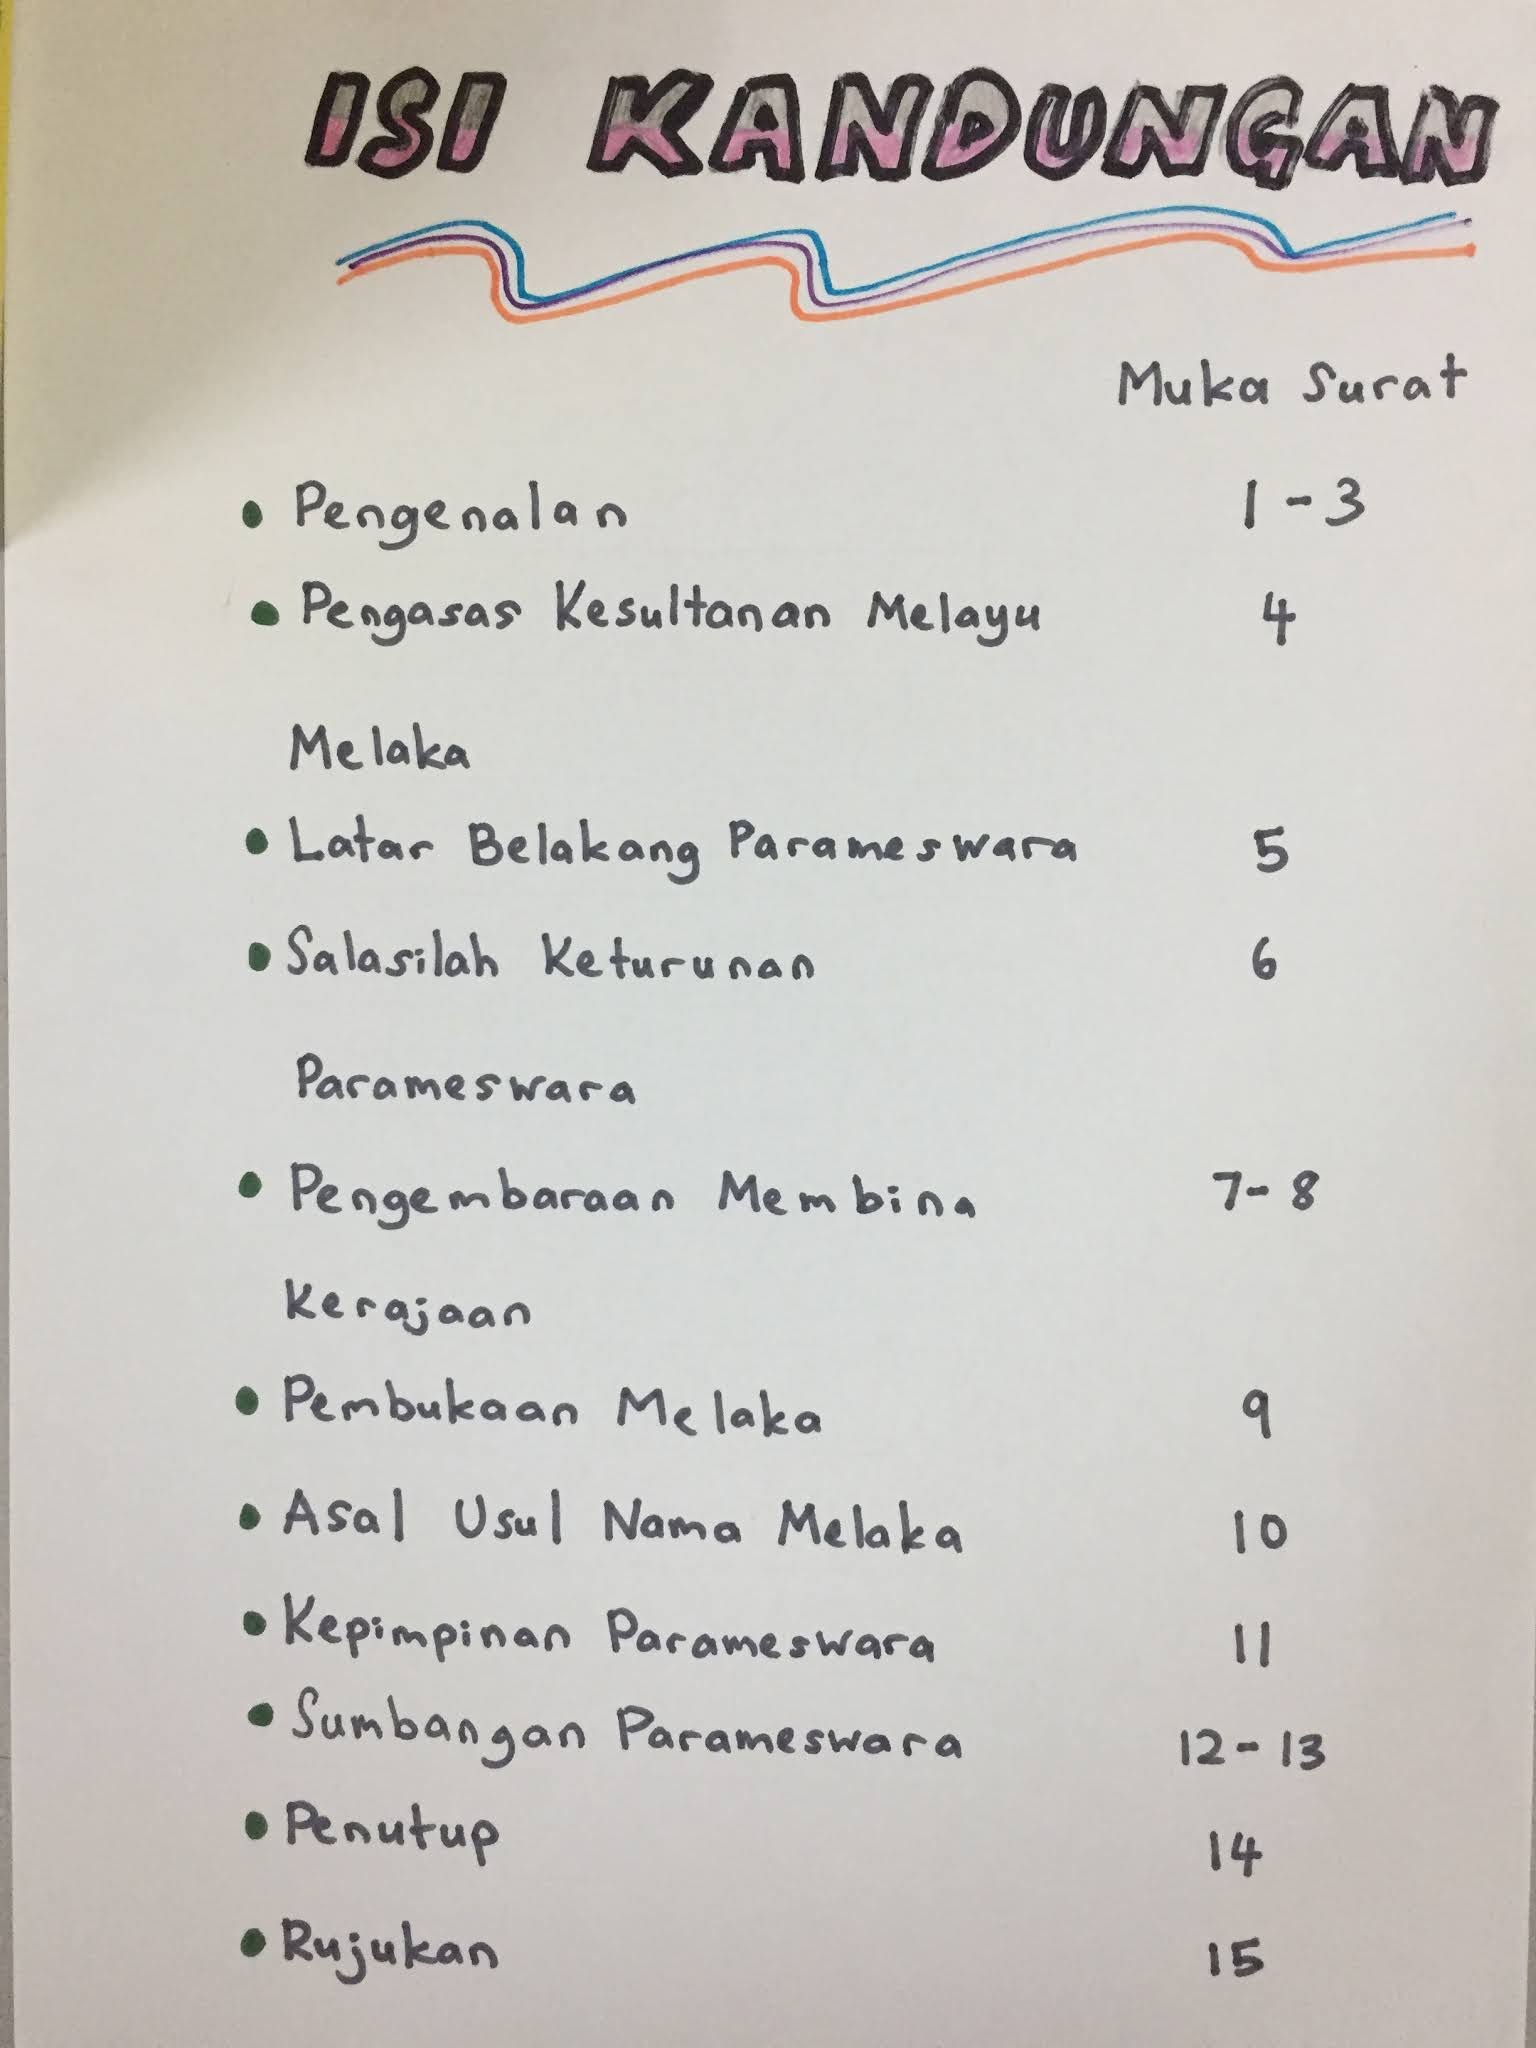 ISI KANDUNGAN
Muka Surat
• Pengenalan 1-3
• Pengasas Kesultanan Melayu 4
Melaka
• Latar Belakang Parameswara 5
• Salasilah Keturunan 6
Parameswara
• Pengembaraan Membina 7-8
Kerajaan
• Pembukaan Melaka 9
• Asal Usul Nama Melaka 10
• Kepimpinan Parameswara 11
• Sumbangan Parameswara 12-13
• Penutup 14
• Rujukan 15